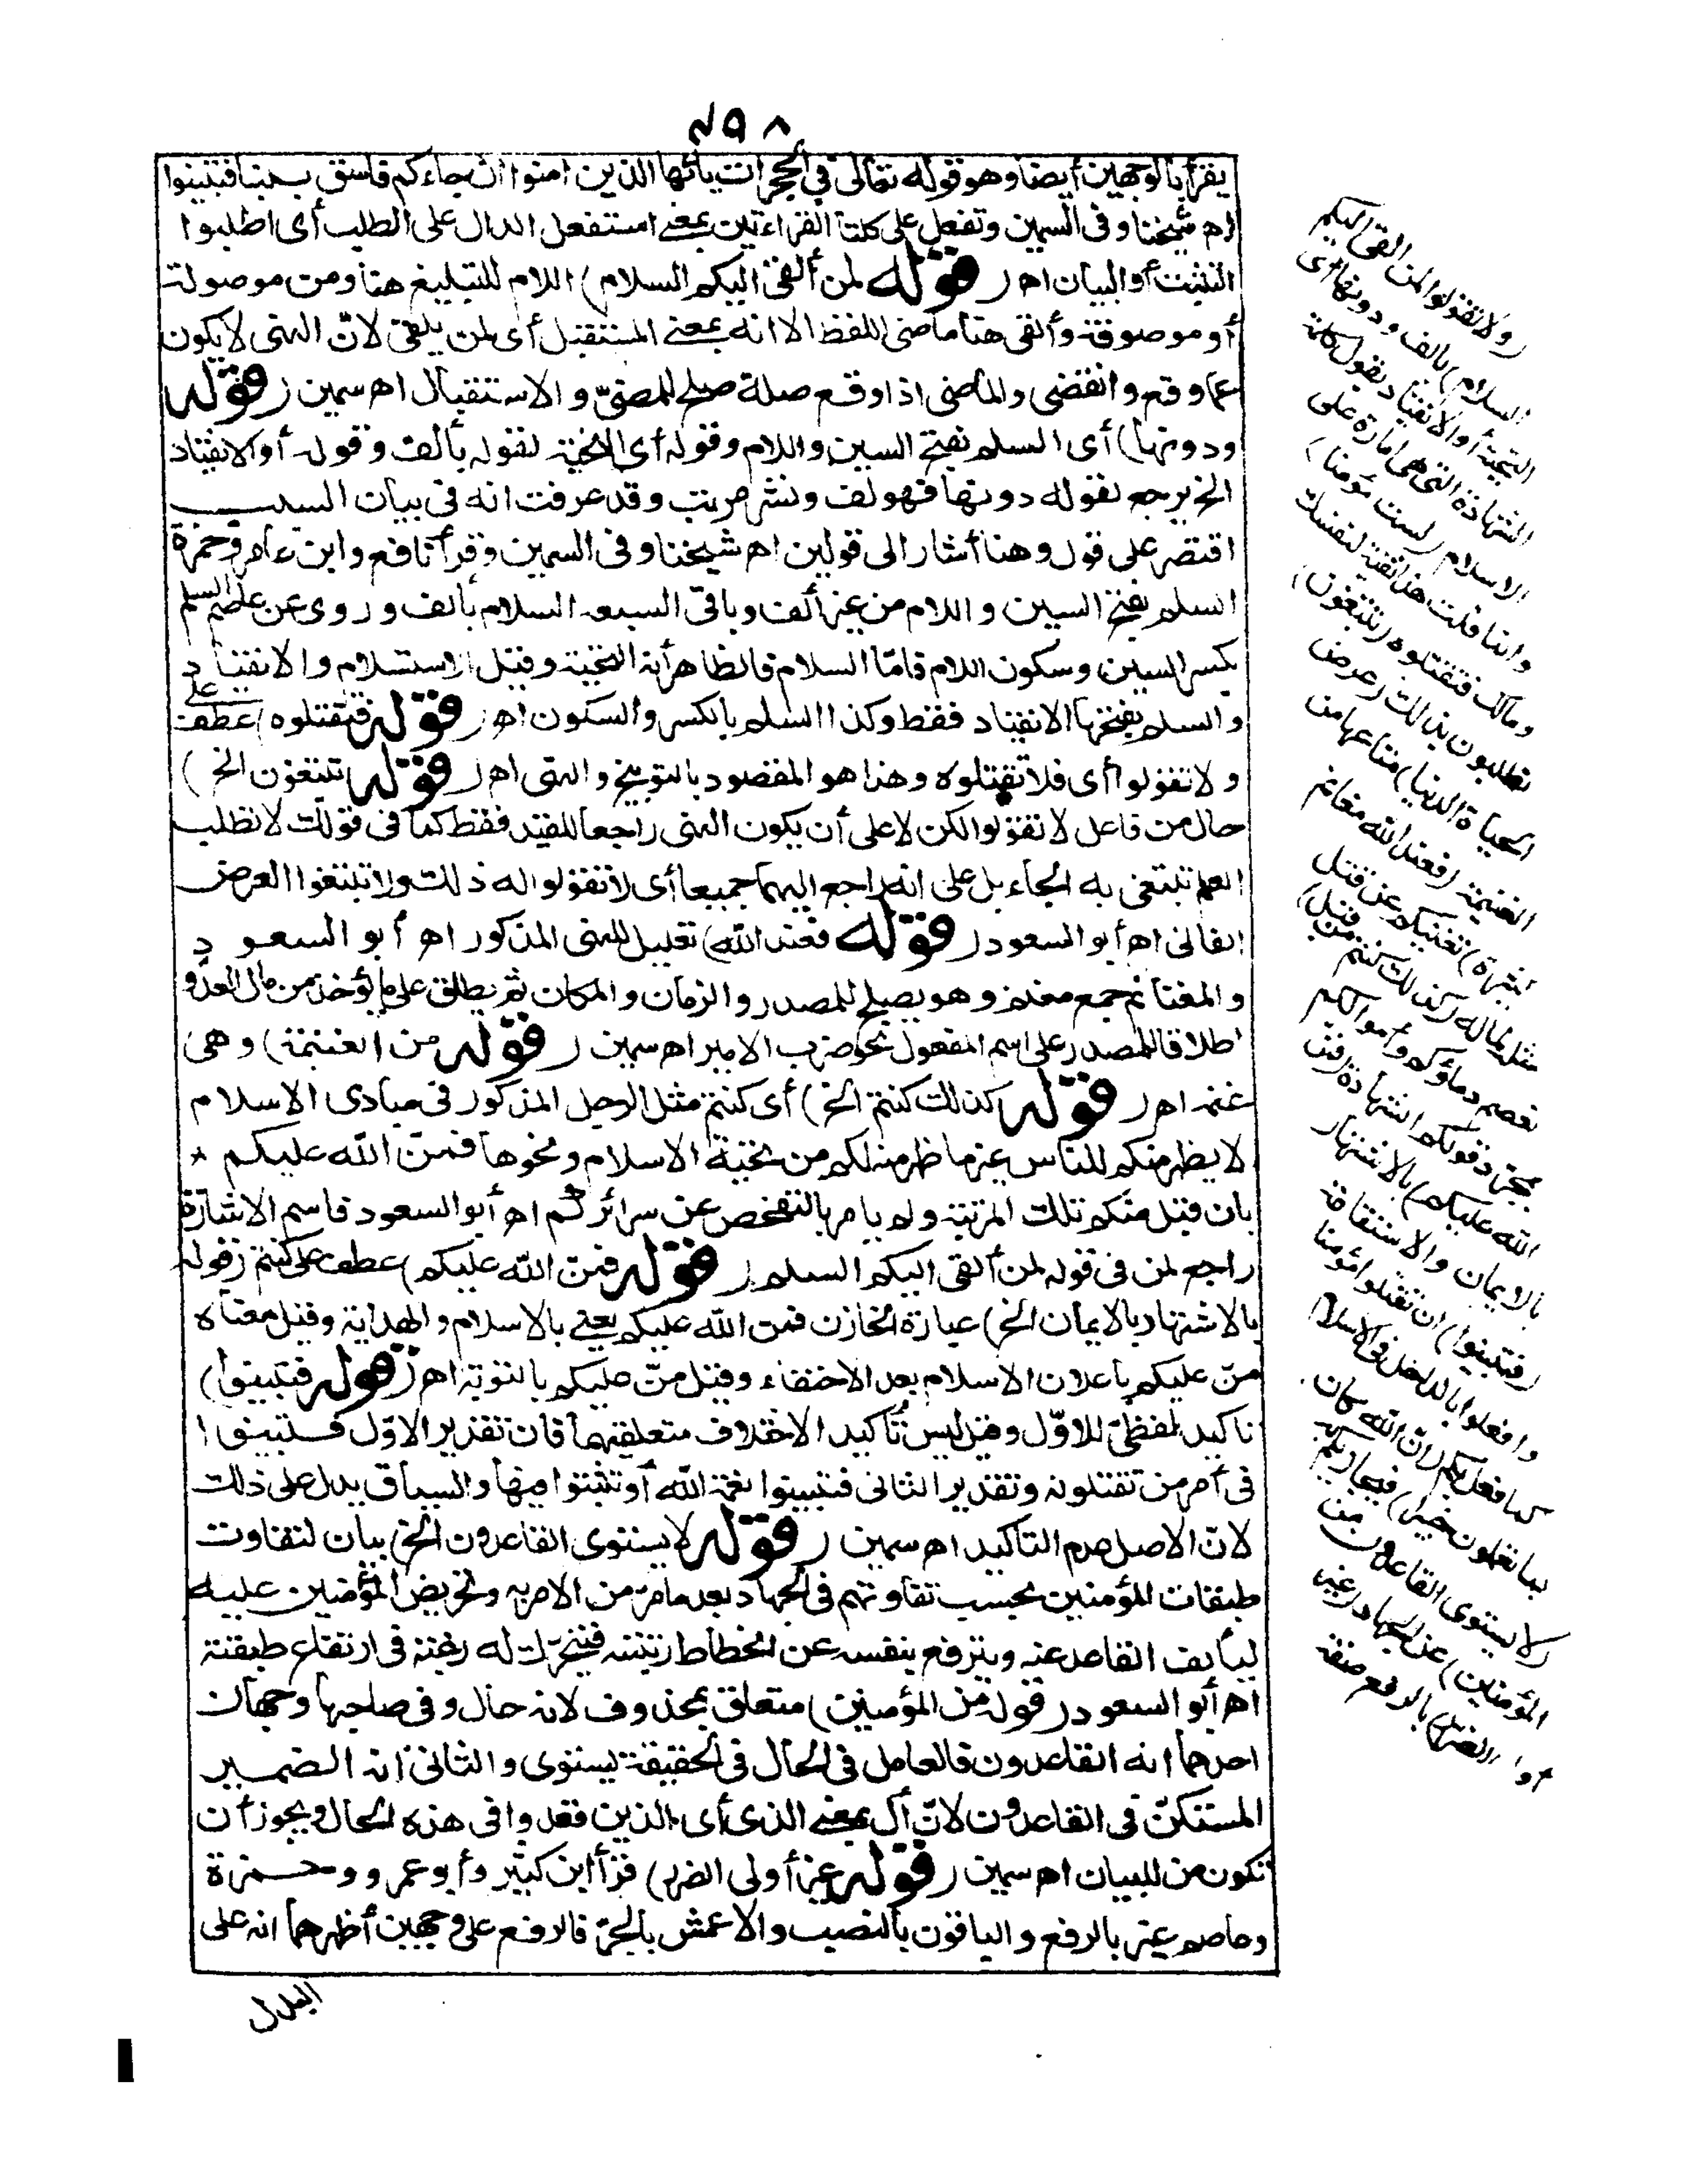 يقرأ بالوجهين أيضا وهو قوله تعالى في الحجرات يا أيها الذين امنوا ان جاءكم فاسق بنبا فتبينوا
اه شيخنا وفى السمين وتفعل على كلتا القراءتين بمعنى استفعل الدال على الطلب أى اطلبوا
التثبت أو البيان اه (قوله لمن ألقى اليكم السلام) اللام للتبليغ هنا ومن موصولة
أو موصوفة وألقى هنا ماضى اللفظ الا انه بمعنى المستقبل أى لمن يلقى لانّ النهى لا يكون
عما وقع وانقضى والماضى اذا وقع صلة صلح للمضىّ والاستقبال اه سمين (قوله
ودونها) أى السلم بفتح السين واللام وقوله أى التحية لقوله بألف وقوله أو الانقياد
الخ يرجع لقوله دونها فهو لف ونشر مرتب وقد عرفت انه فى بيان السبب
اقتصر على قول وهنا أشار الى قولين اه شيخنا وفى السمين وقرأ نافع وابن عامر وحمزة
السلم بفتح السين واللام من غير ألف وباقى السبعه السلام بألف وروى عن عاصم السلم
بكسر السين وسكون اللام فامّا السلام فالظاهر أنه التحية وقيل الاستسلام والانقياد
والسلم بفتحها الانقياد فقط وكذا السلم بالكسر والسكون اه (قوله فتقتلوه) عطف على
ولا تقولوا أى فلا تقتلوه وهذا هو المقصود بالتوبيخ والنهى اه (قوله تبتغون الخ)
حال من فاعل لا تقولوا لكن لا على أن يكون النهى راجعا للقيد فقط كما فى قولك لا تطلب
العلم تبتغى به الجاء بل على انه راجع اليهما جميعا أى لا تقولوا له ذلك ولا تبتغوا العرض
الفانى اه أبو السعود (قوله فعند الله) تعليل للنهى المذكور اه أبو السعود
والمغانم جمع مغنم وهو يصلح للمصدر والزمان والمكان ثم يطلق على ما يؤخذ من مال العدو
اطلاقا للمصدر على اسم المفعول نحو ضرب الامير اه سمين (قوله من الغنيمة) وهى
غنم اه (قوله كذلك كنتم الخ) أى كنتم مثل الرجل المذكور فى مبادى الاسلام
لا يظهر منكم للناس غير ما ظهر منه لكم من تحية الاسلام ونحوها فمنّ الله عليكم *
بان قبل منكم تلك المرتبة ولم يامر بالتفحص عن سرائركم اه أبو السعود فاسم الاشارة
راجع لمن فى قوله لمن ألقى اليكم السلم (قوله فمنّ الله عليكم) عطف على كنتم (قوله
بالاشتهار بالايمان الخ) عبارة الخازن فمن الله عليكم يعنى بالاسلام والهداية وقيل معناه
منّ عليكم باعلان الاسلام بعد الاختفاء وقيل منّ عليكم بالتوبة اه (قوله فتبينوا)
تاكيد لفظىّ للاوّل وقيل ليس تأكيد الاختلاف متعلقيهما فان تقدير الاوّل فتبينوا
فى أمر من تقتلونه وتقدير الثانى فتبينوا نعمة الله أو تثبتوا فيها والسياق يدل على ذلك
لانّ الاصل عدم التاكيد اه سمين (قوله لا يستوى القاعدون الخ) بيان لتفاوت
طبقات المؤمنين بحسب تفاوتهم فى الجهاد بعد ما مرّ من الامر به وتحريض المؤمنين عليه
ليأنف القاعد عنه ويترفع بنفسه عن انحطاط رتبته فيتحرك له رغبة فى ارتفاع طبقته
اه أبو السعود (قوله من المؤمنين) متعلق بمحذوف لانه حال وفى صاحبها وجهان
احدهما انه القاعدون فالعامل فى الحال فى الحقيقة يستوى والثانى انه الضمير
المستكنّ فى القاعدون لانّ أل بمعنى الذى أى الذين قعدوا فى هذه الحال ويجوز أن
تكون من للبيان اه سمين (قوله غير أولى الضرر) قرأ ابن كثير وأبو عمرو وحمزة
وعاصم غير بالرفع والباقون بالنصب والاعمش بالجرّ فالرفع على وجهين أظهرهما انه على
البدل
(ولا تقولوا لمن القى اليكم
السلام) بالف ودونها أى
التحية أو الانقياد بقول كلمة
الشهادة التى هى امارة على
الاسلام (لست مؤمنا)
وانما قلت هذا تقية لنفسك
ومالك فتقتلوه (تبتغون)
تطلبون بذلك (عرض
الحياة الدنيا) متاعها من
الغنيمة (فعند الله مغانم
كثيرة) تغنيكم عن قتل
مثله لماله (كذلك كنتم من قبل)
تعصم دماؤكم وأموالكم
بمجرّد قولكم الشهادة (فمنّ
الله عليكم) بالاشتهار
بالايمان والاستقامة
(فتبينوا) ان تقتلوا مؤمنا
وافعلوا بالداخل فى الاسلام
كما فعل بكم (انّ الله كان
بما تعملون خبيرا) فيجازيكم به
(لا يستوى القاعدون من
المؤمنين) عن الجهاد (غير
أولى الضرر) بالرفع صفة